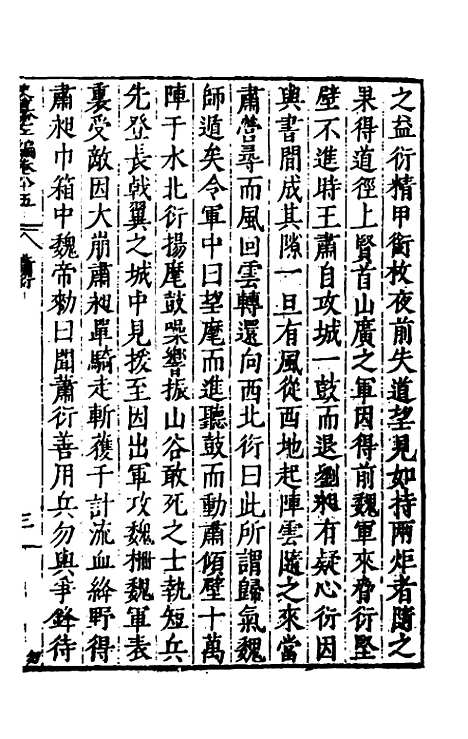 之益衍精甲銜枚夜前失道望見如持兩炬者隨之
果得道徑上賢首山廣之軍因得前魏軍來脅衍堅
壁不進時王肅自攻城一鼓而退劉昶有疑心衍因
與書間成其隙一旦有風從西北起陣雲隨之來當
肅營尋而風回雲轉還向西北衍曰此所謂歸氣魏
師遁矣令軍中曰望麾而進聽鼓而動肅傾壁十萬
陣于水北衍揚麾鼓噪響振山谷敢死之士執短兵
先登長戟翼之城中見援至因出軍攻魏柵魏軍表
裏受敵因大崩肅昶單騎走斬獲千計流血絳野得
肅昶巾箱中魏帝勑曰聞蕭衍善用兵勿與爭鋒待
編卷六五
蕭衍
三